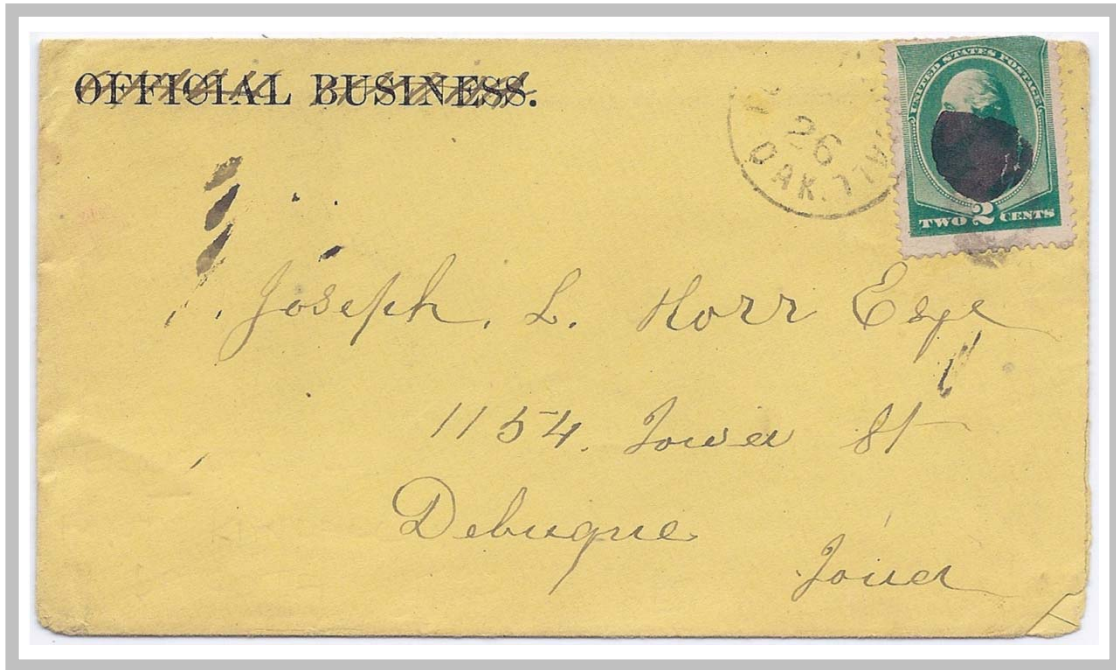 OFFICIAL BUSINESS.
26
DAK.
UNITED STATES POSTAGE
TWO 2 CENTS
Joseph. L. Horr Esqr
1154. Iowa St
Debuque
Ioua